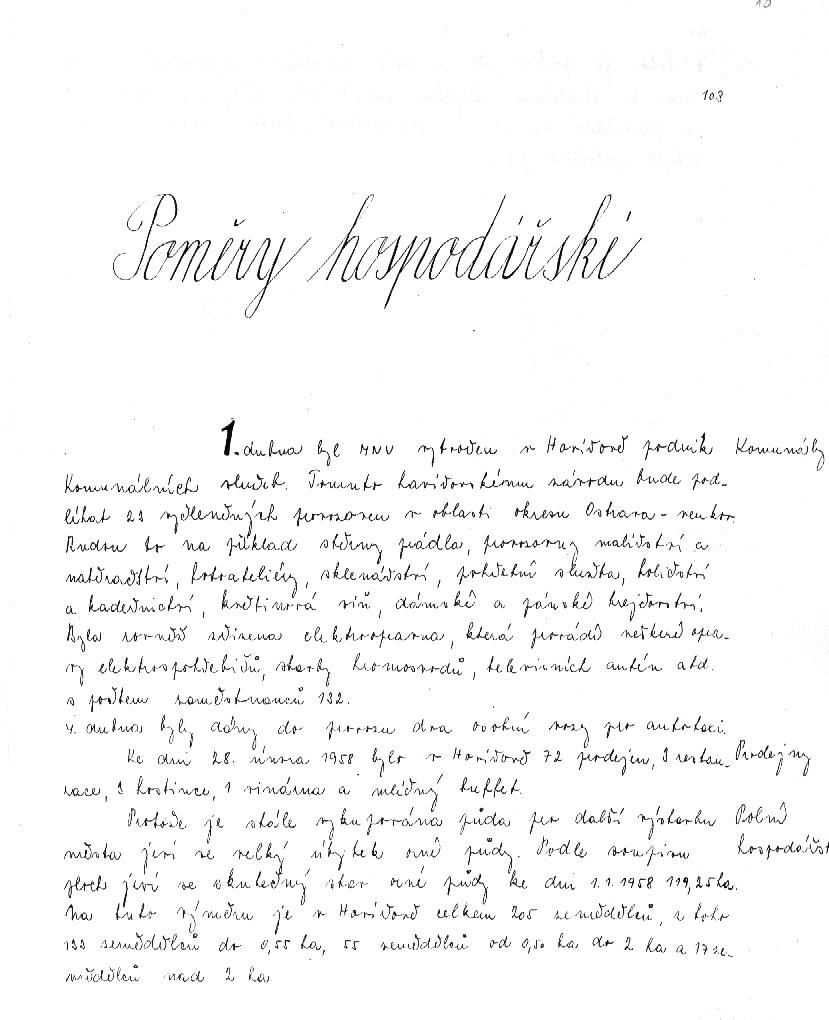 103
Poměry hospodářské
1. dubna byl MNV vytvořen v Havířově podnik Komunály
Komunálních služeb. Tomuto havířovskému závodu bude pod-
léhat 23 vydlených provozoven v oblasti okresu Ostrava-venkov.
Budou to na příklad sběrny prádla, provozovny malířství a
natěračství, fotoateliéry, sklenářství, pohřební služba, holičství
a kadeřnictví, květinová síň, dámské a pánské krejčovství.
Byla rovněž zřízena elektroopravna, která provádí veškeré opra-
vy elektrospotřebičů, stavby hromosvodů, televisních antén atd.
s počtem zaměstnanců 132.
4. dubna byly dány do provozu dva osobní vozy pro autotaxi.
Ke dni 28. února 1958 bylo v Havířově 72 prodejen, 3 restau- Prodejny
race, 3 hostince, 1 vinárna a mléčný buffet.
Protože je stále vykupována půda pro další výstavbu Polní
města jeví se velký úbytek orné půdy. Podle soupisu hospodářst
ploch jeví se skutečný stav orné půdy ke dni 1.1.1958 119,25 ha.
Na tuto výměru je v Havířově celkem 205 zemědělců, z toho
133 zemědělců do 0,55 ha, 55 zemědělců od 0,50 ha do 2 ha a 17 ze-
mědělců nad 2 ha